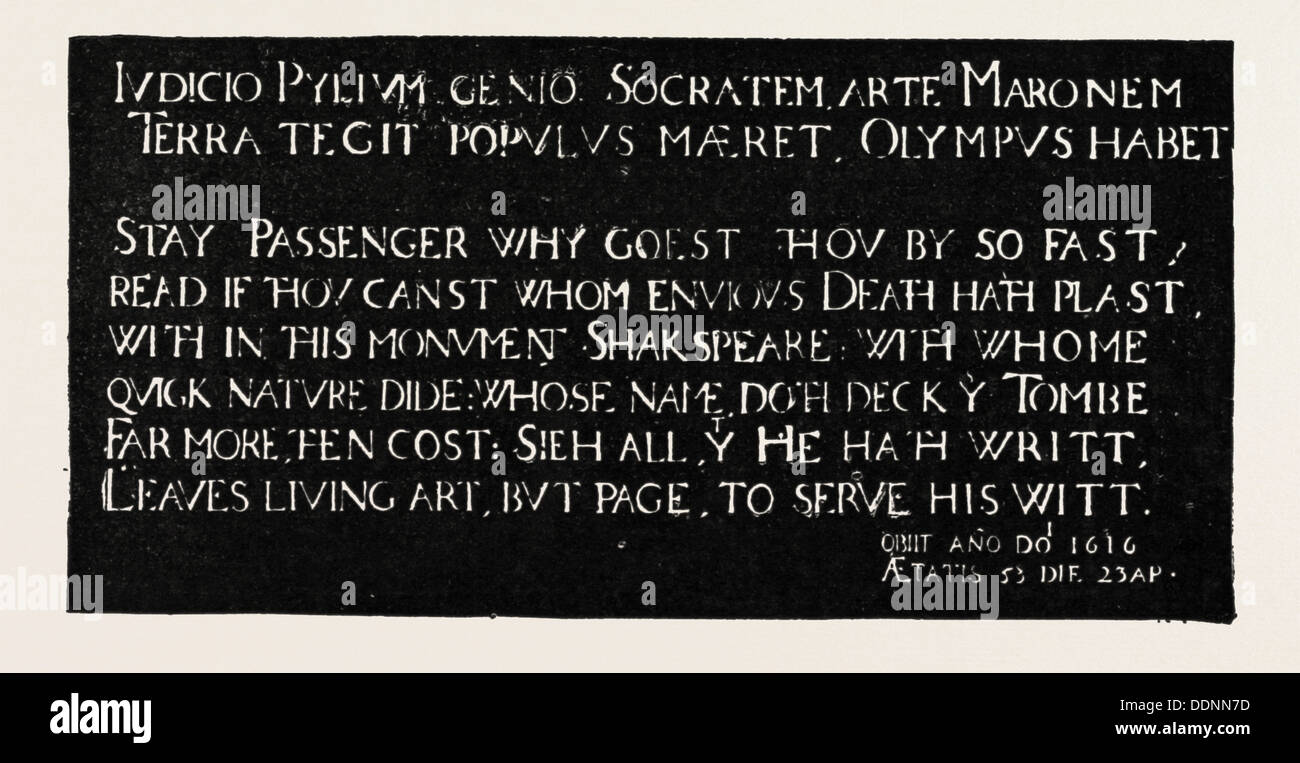 IVDICIO PYLIVM GENIO SOCRATEM, ARTE MARONEM
TERRA TEGIT POPVLVS MÆRET, OLYMPVS HABET
STAY PASSENGER WHY GOEST THOV BY SO FAST,
READ IF THOV CANST WHOM ENVIOVS DEATH HATH PLAST,
WITH IN THIS MONVMENT SHAKSPEARE: WITH WHOME
QVICK NATVRE DIDE: WHOSE NAME, DOTH DECK Y TOMBE
FAR MORE, THEN COST: SIEH ALL, YT HE HATH WRITT,
LEAVES LIVING ART, BVT PAGE, TO SERVE HIS WITT.
OBIIT AÑO DOI 1616
ÆTATIS 53 DIE 23 AP.
alamy
Image ID: DDNN7D
www.alamy.com